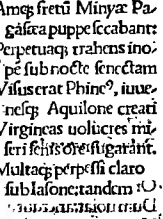 Amq; fretū Minyæ Pa-
gasæa puppe secabant:
Perpetuaq; trahens ino-
pē sub nocte senectam
Visus erat Phine⁹, iuue-
nesq; Aquilone creati
Virgineas uolucres mi-
seri
Multaq; perpessi claro
sub Iasone; tandem